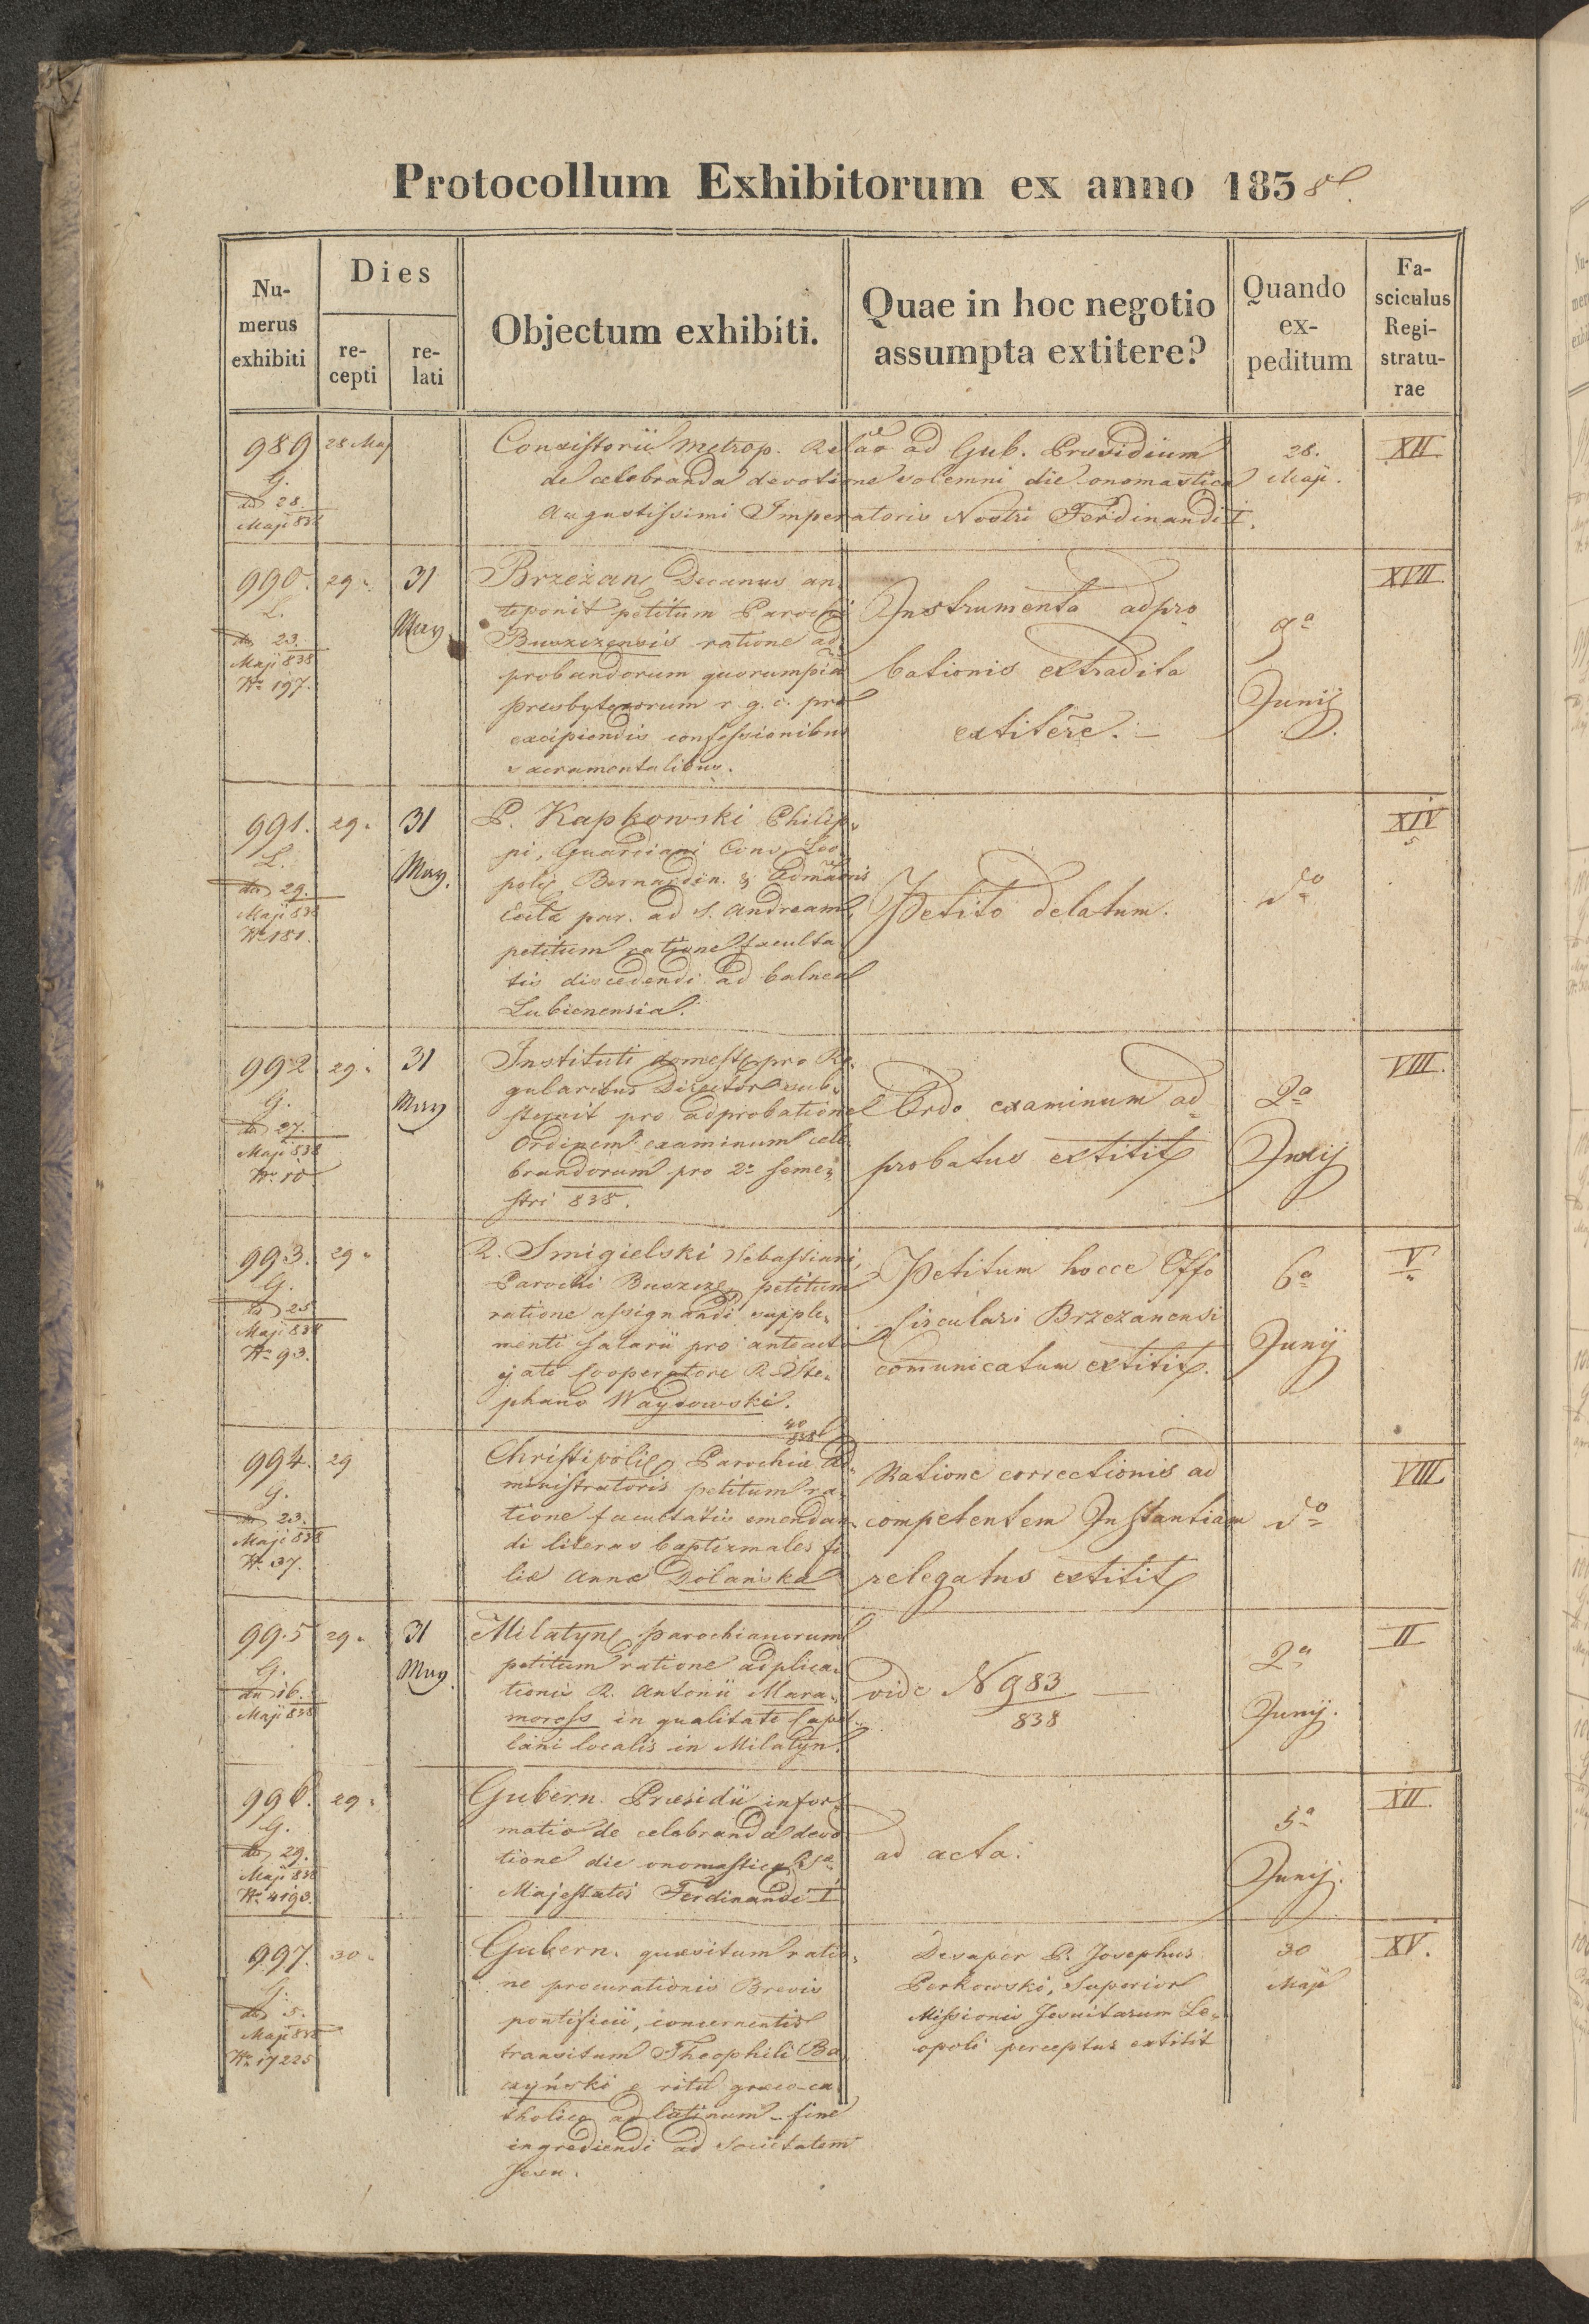 Protocollum Exhibitorum ex anno 1838.
Nu-
merus
exhibiti
Dies
re-
cepti
re-
lati
Objectum exhibiti.
Quae in hoc negotio
assumpta extitere?
Quando
ex-
peditum
Fa-
sciculus
Regi-
stratu-
rae
989
G.
dto 28
Maji 838
28 Maj
Consistorii Metrop. Relao ad Gub. Praesidium
de celebranda devotione solemni die onomastica
Augustissimi Imperatoris Nostri Ferdinandi I.
28.
Maji.
XII
990.
L.
dto 23.
Maji 838
No 197.
29.
31
May
Brzeżan Decanus an-
teponit petitum Parochi
Buszczensis ratione ad-
probandorum quorumpiã
presbyterorum r. g. c. pro
excipiendis confessionibus
sacramentalibus.
Instrumenta adpro
bationis extradita
extitere. —
9a
Junij
XVII
991.
L.
dto 29.
Maji 838
No 181.
29.
31
May.
P. Kapkowski Philip-
pi, Guardiani Conv. Leo
polis Bernardin. &
Ecclã par. ad S. Andream
petitum ratione faculta
tis discedendi ad balnea
Lubienensia.
Petito delatum.
do
XIV
5
992
G.
dto 27.
Maji 838
No 10
29.
31
May
Instituti domest. pro Re-
gularibus Director sub-
sternit pro adprobatione
Ordinem examinum cele
brandorum pro 2o seme-
stri 838.
Ordo examinum ad-
probatus extitit
2a
Junij
VIII.
993.
G.
dto 25
Maji 838
No 93.
29.
R. Smigielski Sebastiani,
Parochi Buszcze petitum
ratione assignandi supple-
menti salarii pro anteacto
jato Cooperatore R. Ste-
phano Waysowski.
Petitum hocce Offo
Circulari Brzezanensi
comunicatum extitit.
6a
Junij
V
994.
G.
dto 23.
Maji 838
No 37.
29
40
838
Christipolis Parochiæ Ad-
ministratoris petitum ra-
tione facultatis emendan
di literas baptismales fi-
liæ Annæ Dolańska
Ratione correctionis ad
competentem Instantiam
relegatus extitit
do
VIII
995
G.
dto 16.
Maji 838
29.
31
May.
Milatyn parochianorum
petitum ratione adplica-
tionis R. Antonii Mara-
moross in qualitate Capel-
lani localis in Milatyn.
vide N 983
838
2a
Junij.
II
996.
G.
dto 29.
Maji 838
No 4193.
29.
Gubern. Præsidii infor-
matio de celebranda devo
tione die onomastica
Majestatis Ferdinandi I
ad acta.
5a
Junij.
XII.
997.
G.
dto 5.
Maji 838
No 17225
30.
Gubern. quæsitum ratio-
ne procurationis Brevis
pontificii, concernentis
transitum Theophili Ba
czyński e ritu græco-ca
tholico ad latinum – fine
ingrediendi ad Societatem
Jesu.
Desuper P. Josephus
Perkowski, Superior
Missionis Jesuitarum Le-
opoli perceptus extitit
30
Maji
XV.